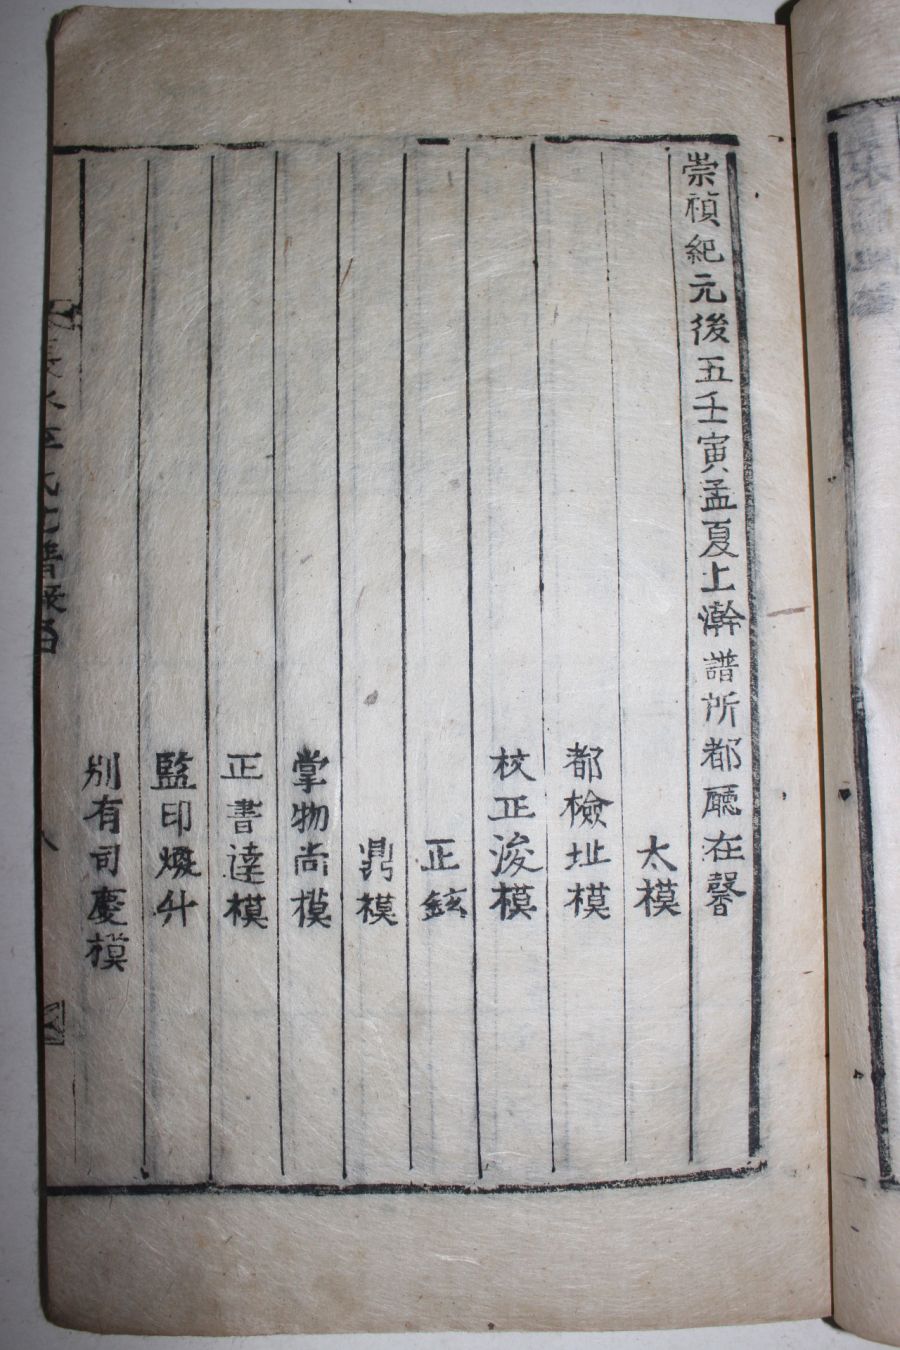 崇禎紀元後五壬寅孟夏上澣譜所都廳在馨
太模
都檢址模
校正浚模
正鉉
鼎模
掌物尚模
正書達模
監印燉升
別有司慶模